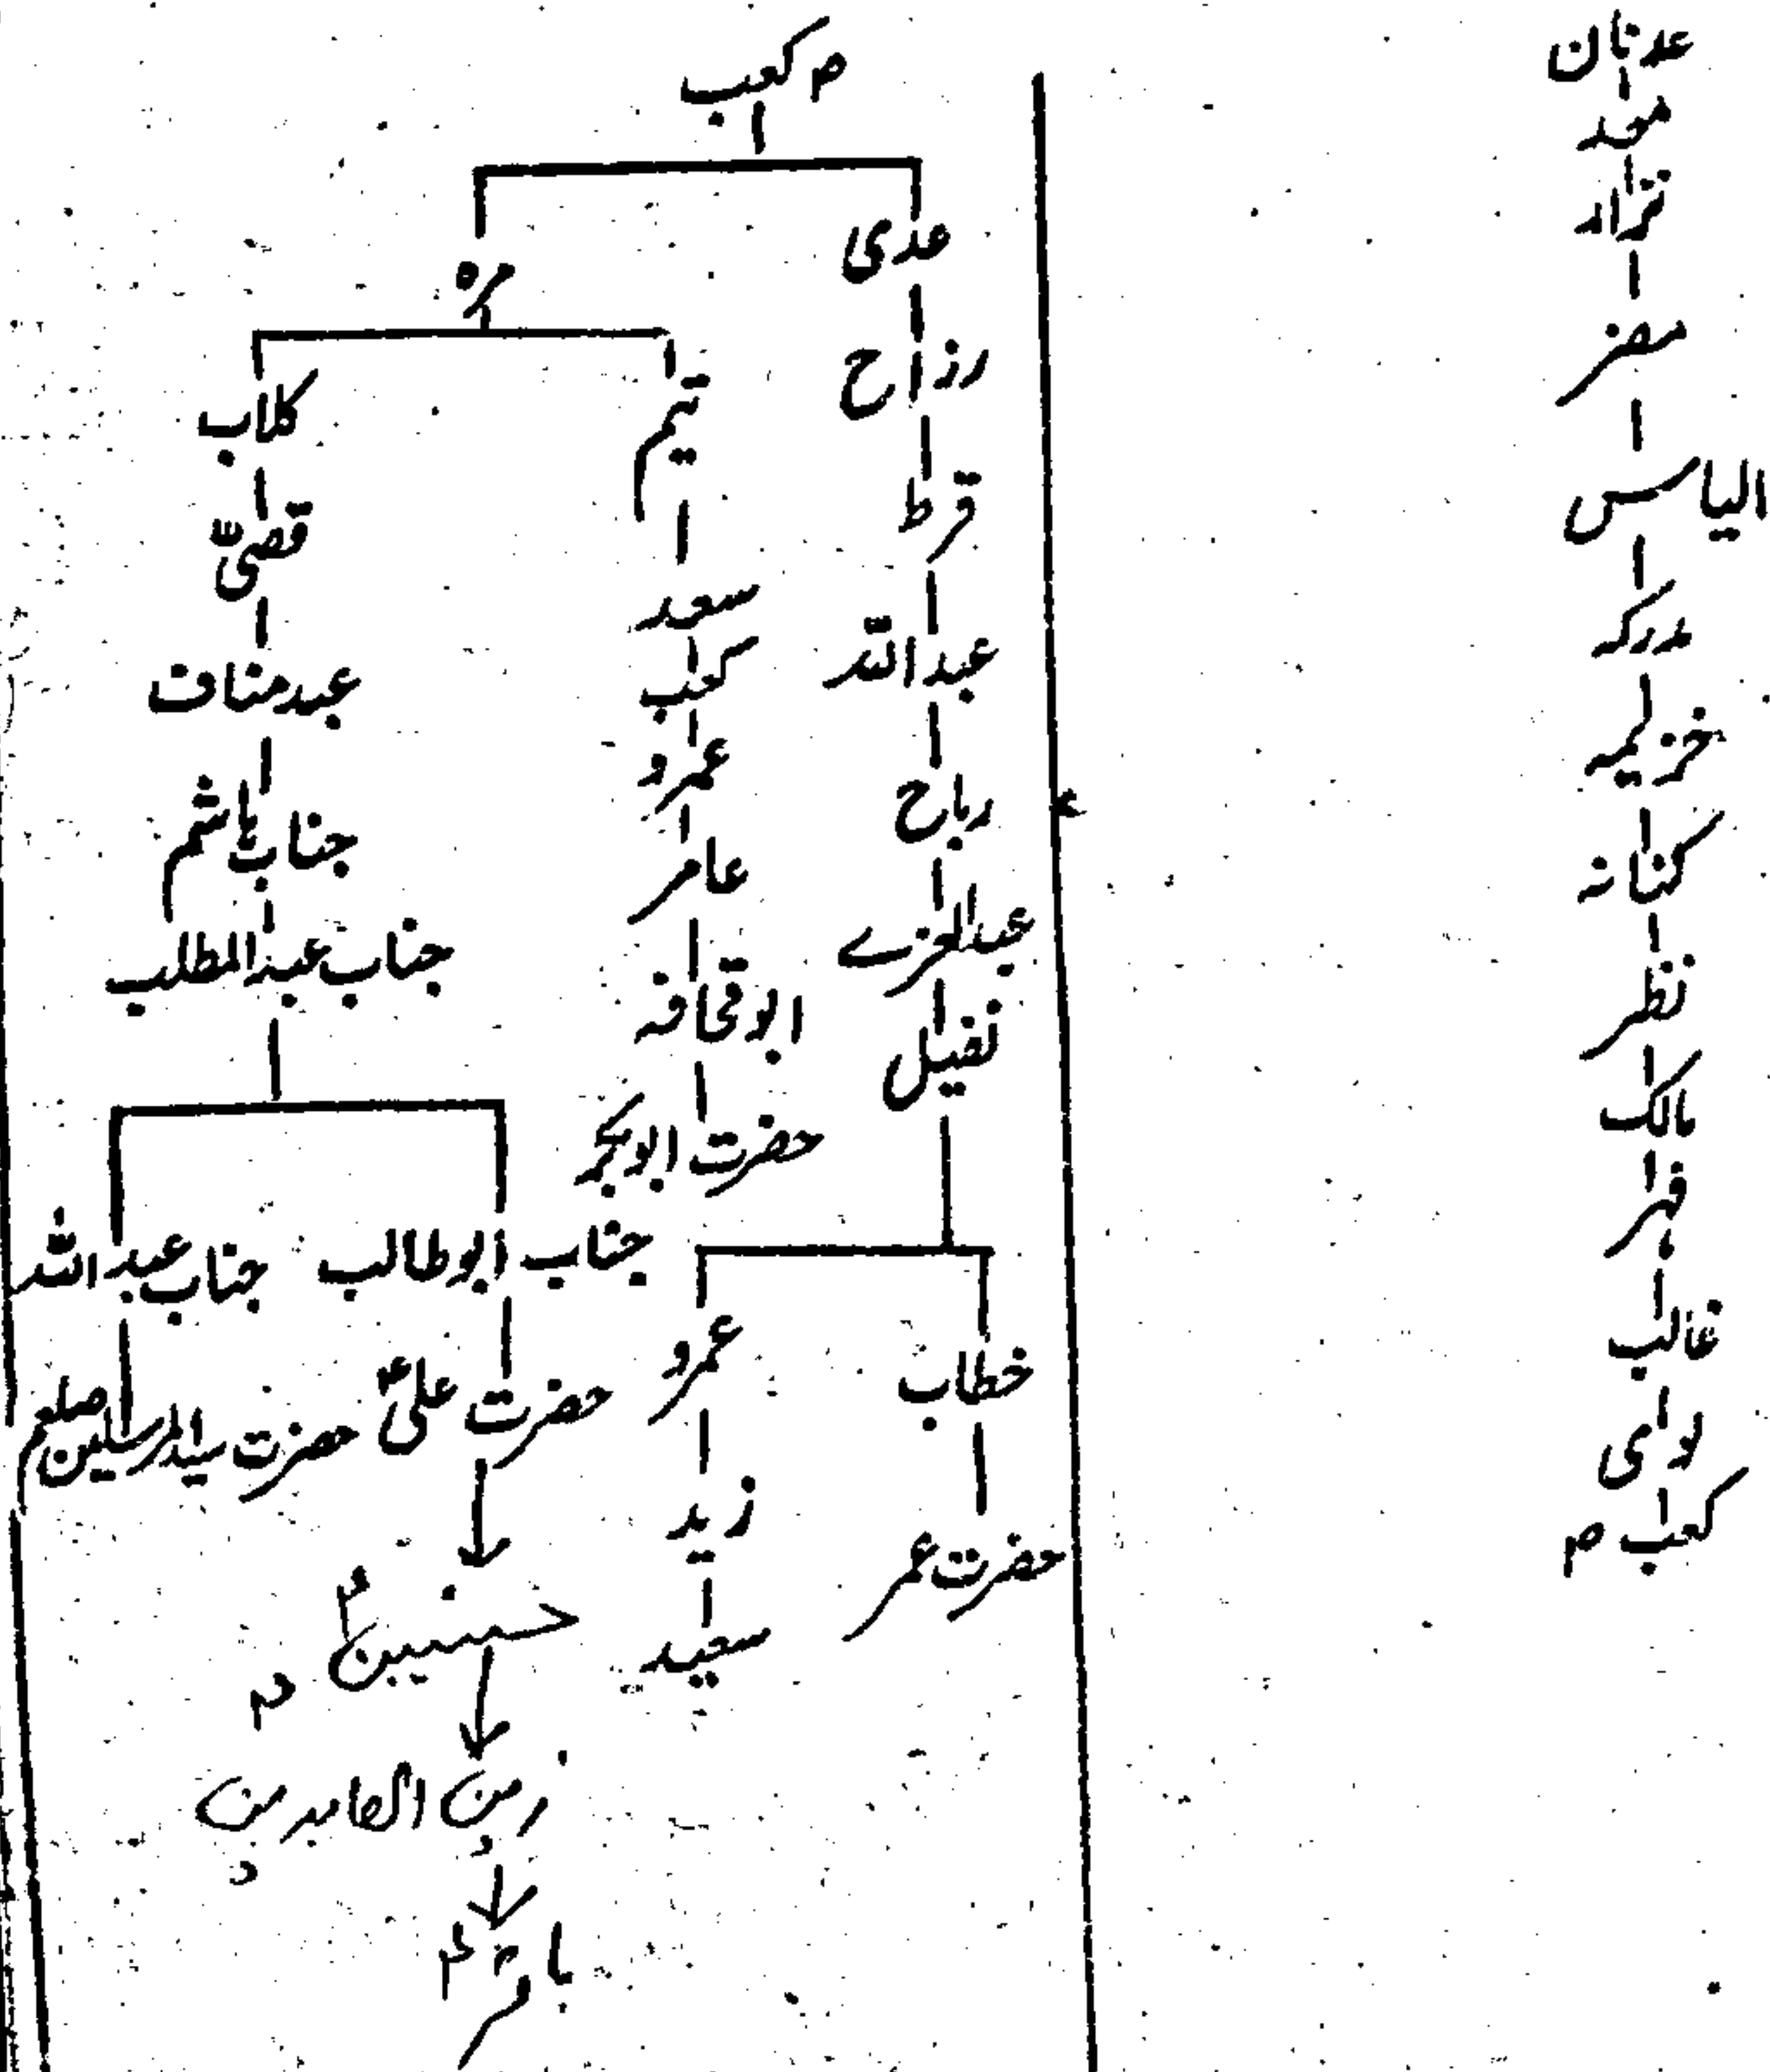 عدنان
معد
نزار
مضر
الیاس
مدرکہ
خزیمہ
کنانہ
نظر
مالک
فہر
غالب
لوای
کعب م
م کعب
عدی
رزاح
قرط
عبداللہ
رباح
عبدالعزے
نفیل
خطاب
حضرت عمر
عمرو
زید
سعید
مرہ
تیم
سعد
کعب
عمرو
عامر
ابو قحافہ
حضرت ابوبکر
کلاب
قصیّ
عبد مناف
جناب ہاشم
جناب عبدالمطلب
جناب ابوطالب
حضرت علیؑ
حسنینؑ
زین العابدین
باقرؑ
جناب عبداللہ
حضرت سیدالمرسلین صلعم